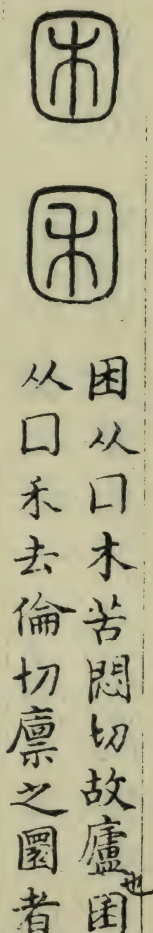 困
囷
困从囗木苦悶切故廬也囷
从囗禾去倫切廩之圜者